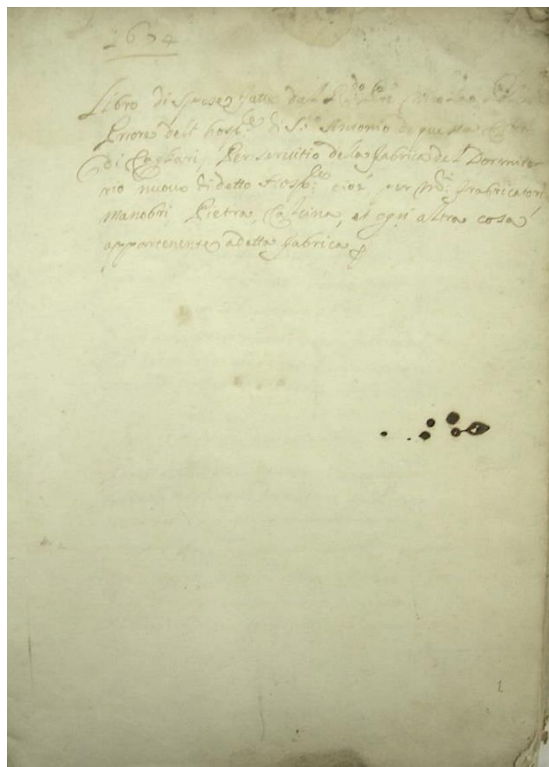 1634
Libro di Spese fatte dal
Priore dell hosp.le di S.to Antonio di questa
di Cagliari Per servitio dela fabrica del Dormito
rio nuovo di detto Hosp.le cioe per M.ri frabricatori
manobri, Pietra, Calcina, et ogni altra cosa
appartenente a detta fabrica
1